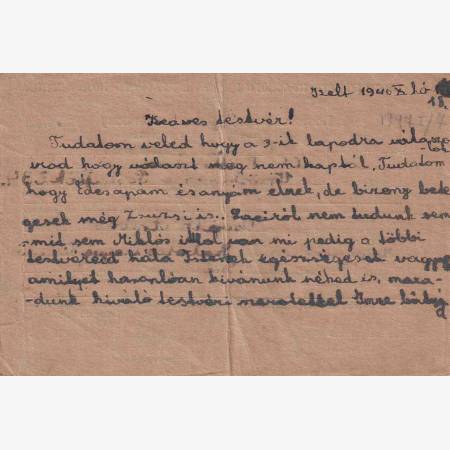 Kelt 1946 X hó
18.
Kedves testvér!
Tudatom veled hogy a 3-ik lapodra válaszo
irod hogy választ még nem kaptál. Tudatom
hogy édesapám és anyám élnek, de bizony bete
gesek még Zsuzsi is. Laciról nem tudunk sem
mit sem Miklós itthol van mi pedig a többi
testvéreid hála Istenek egésségesek vagyu
amilyet hasonlóan kivánunk néked is, mara-
dunk kiváló testvéri szeretettel Imre bátyj